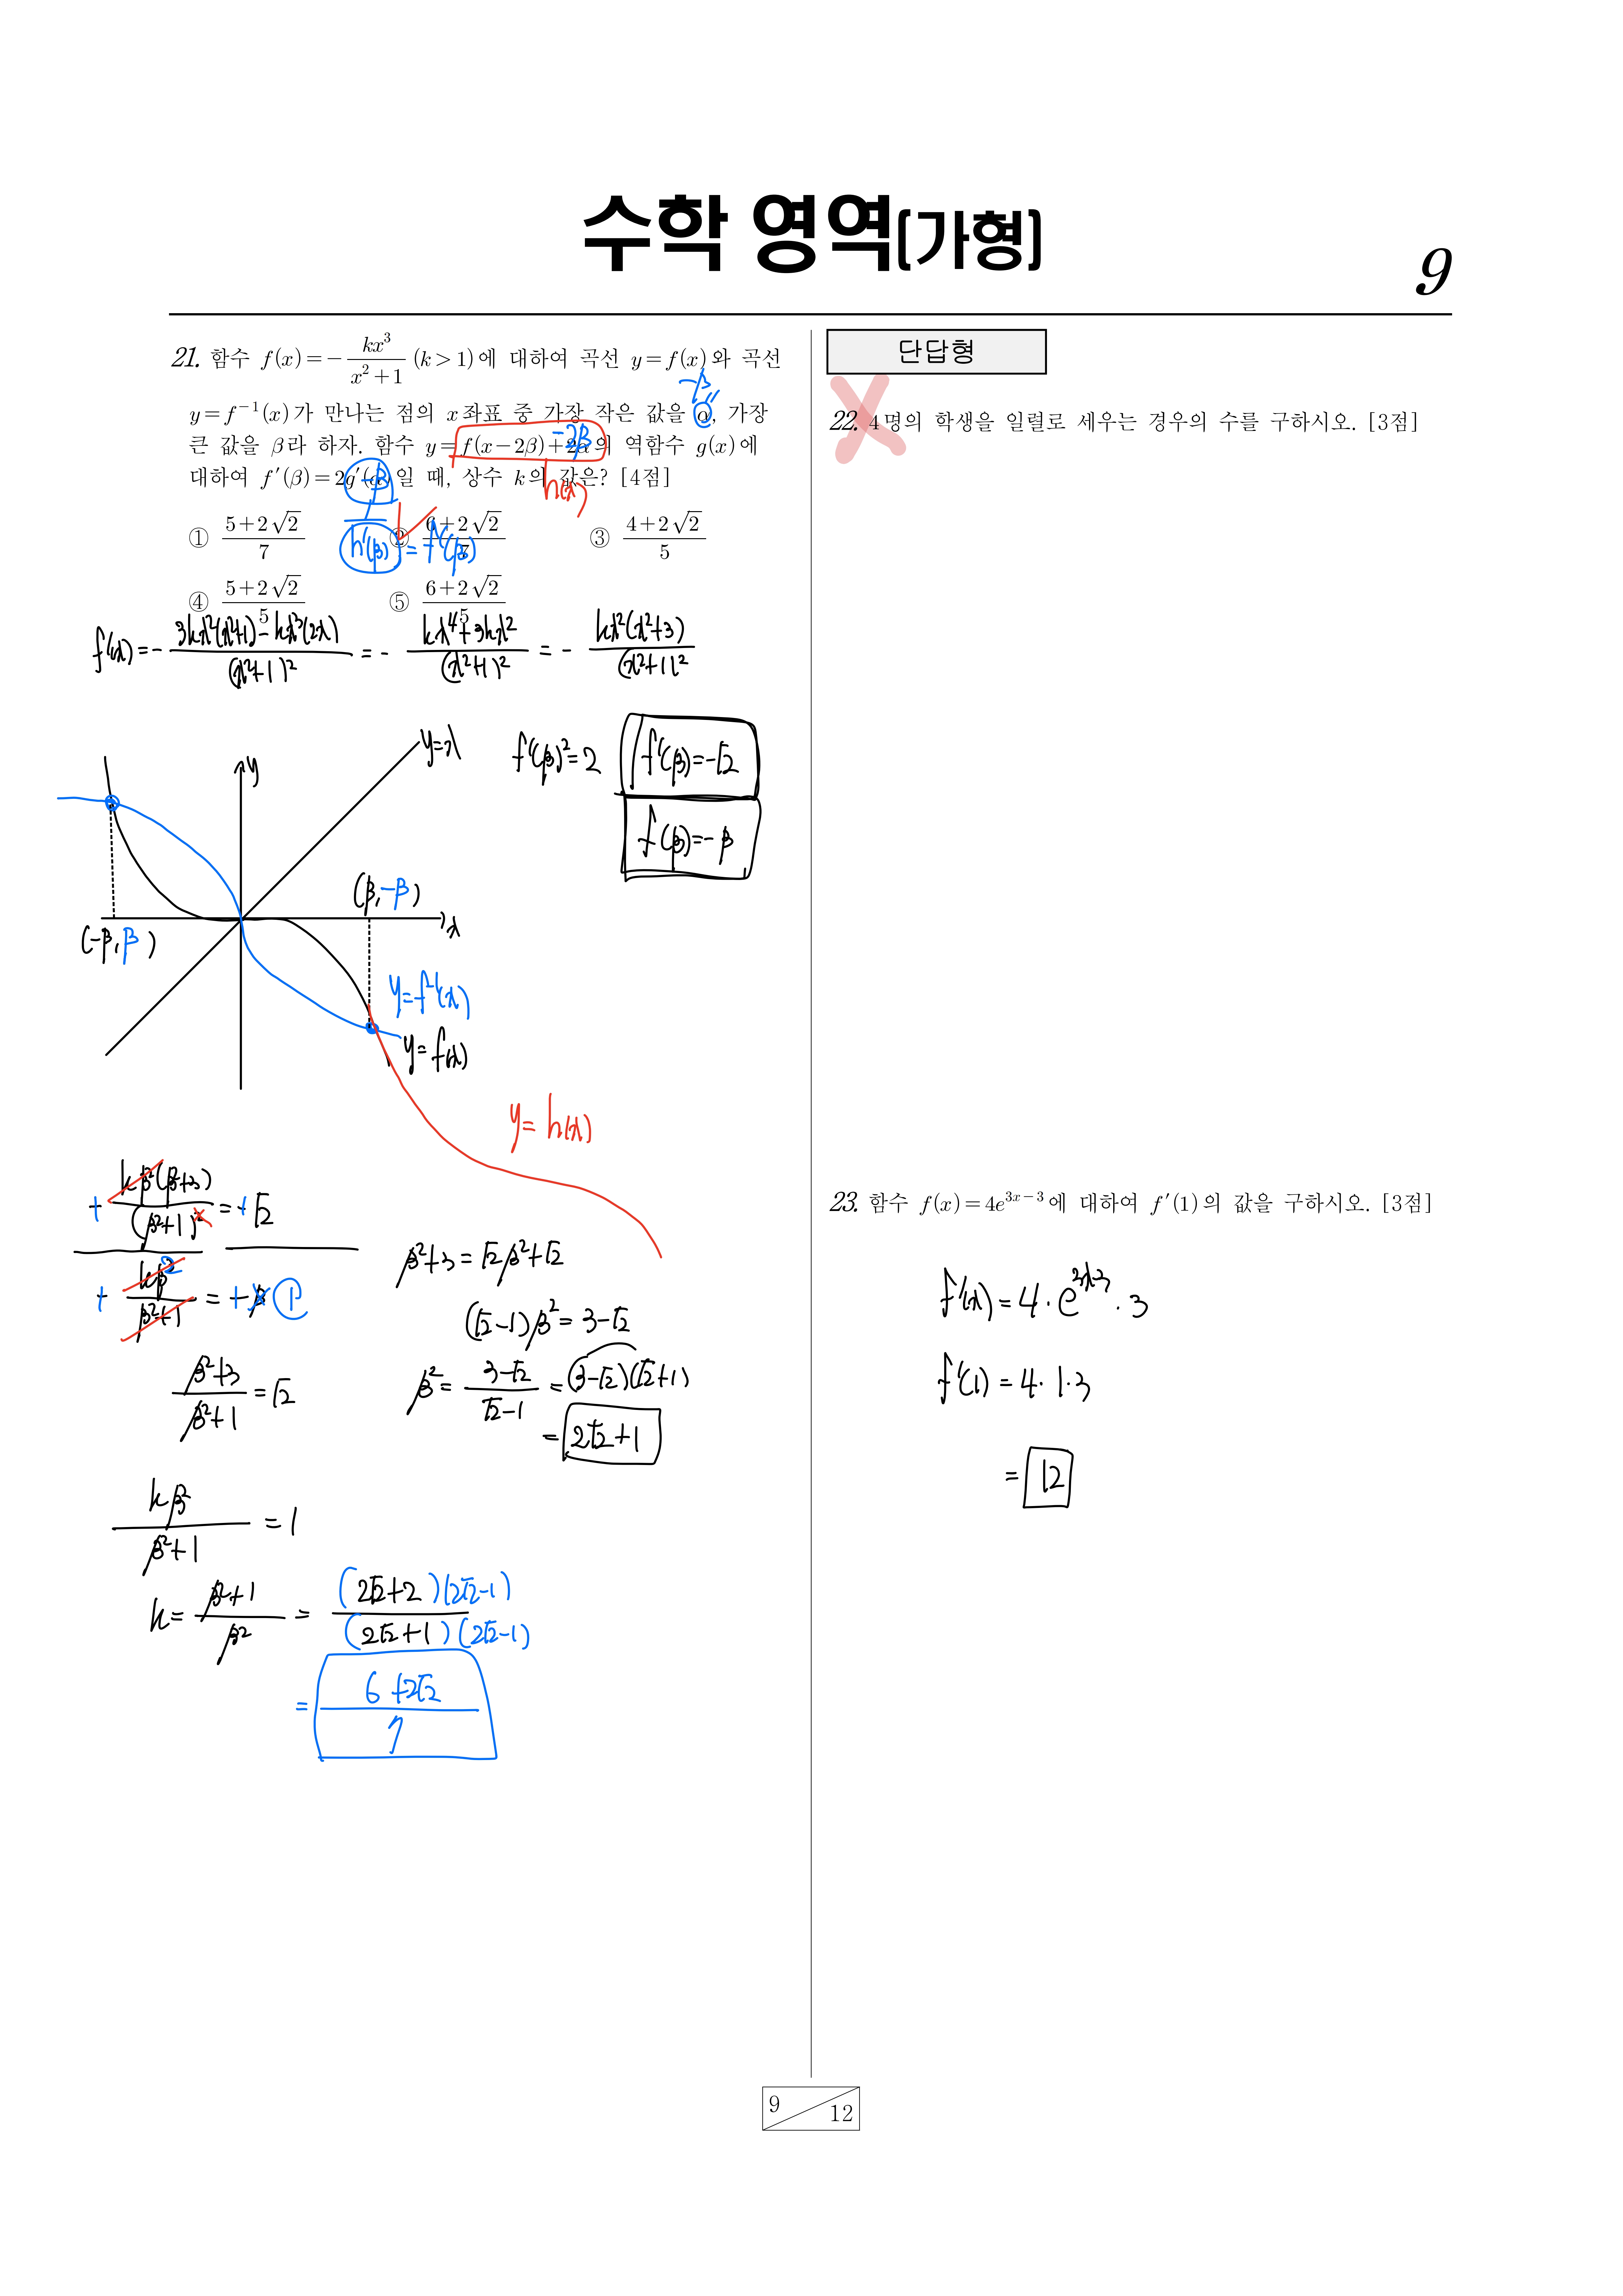 수학 영역(가형)
9
21. 함수 f(x)=-\frac{kx^3}{x^2+1} (k>1)에 대하여 곡선 y=f(x)와 곡선
y=f^{-1}(x)가 만나는 점의 x좌표 중 가장 작은 값을 α, 가장
큰 값을 β라 하자. 함수 y=f(x-2β)+2α의 역함수 g(x)에
대하여 f'(β)=2g'(α)일 때, 상수 k의 값은? [4점]
① \frac{5+2\sqrt{2}}{7} ② \frac{6+2\sqrt{2}}{7} ③ \frac{4+2\sqrt{2}}{5}
④ \frac{5+2\sqrt{2}}{5} ⑤ \frac{6+2\sqrt{2}}{5}
-β
-2β
h(x)
-β
\frac{1}{h'(β)} = f'(β)
f'(x)=-\frac{3kx^2(x^2+1)-kx^3(2x)}{(x^2+1)^2} = -\frac{kx^4+3kx^2}{(x^2+1)^2} = -\frac{kx^2(x^2+3)}{(x^2+1)^2}
y=x
y
f'(β)^2=2
f'(β)=-\sqrt{2}
f(β)=-β
(β,-β)
x
(-β,β)
y=f^{-1}(x)
y=f(x)
y=h(x)
+\frac{kβ^2(β^2+3)}{(β^2+1)^2}=+\sqrt{2}
+\frac{kβ^2}{β^2+1}=+1
\frac{β^2+3}{β^2+1}=\sqrt{2}
β^2+3=\sqrt{2}β^2+\sqrt{2}
(\sqrt{2}-1)β^2=3-\sqrt{2}
β^2=\frac{3-\sqrt{2}}{\sqrt{2}-1}=(3-\sqrt{2})(\sqrt{2}+1)
=2\sqrt{2}+1
\frac{kβ^2}{β^2+1}=1
k=\frac{β^2+1}{β^2}=\frac{(2\sqrt{2}+2)(2\sqrt{2}-1)}{(2\sqrt{2}+1)(2\sqrt{2}-1)}
=\frac{6+2\sqrt{2}}{7}
단답형
22. 4명의 학생을 일렬로 세우는 경우의 수를 구하시오. [3점]
23. 함수 f(x)=4e^{3x-3}에 대하여 f'(1)의 값을 구하시오. [3점]
f'(x)=4·e^{3x-3}·3
f'(1)=4·1·3
=12
9
12